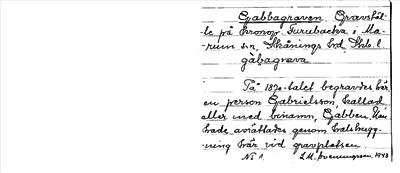 Gabbagraven. Gravstäl-
le på kronopr Furubacka i Ma-
rum s:n, Skånings hd Skb. l
gàbagrava
På 1870-talet begravdes här
en person Gabrielsson, kallad
eller med binamn, Gabben. Han
hade avrättats genom halshugg-
ning här vid gravplatsen.
1948